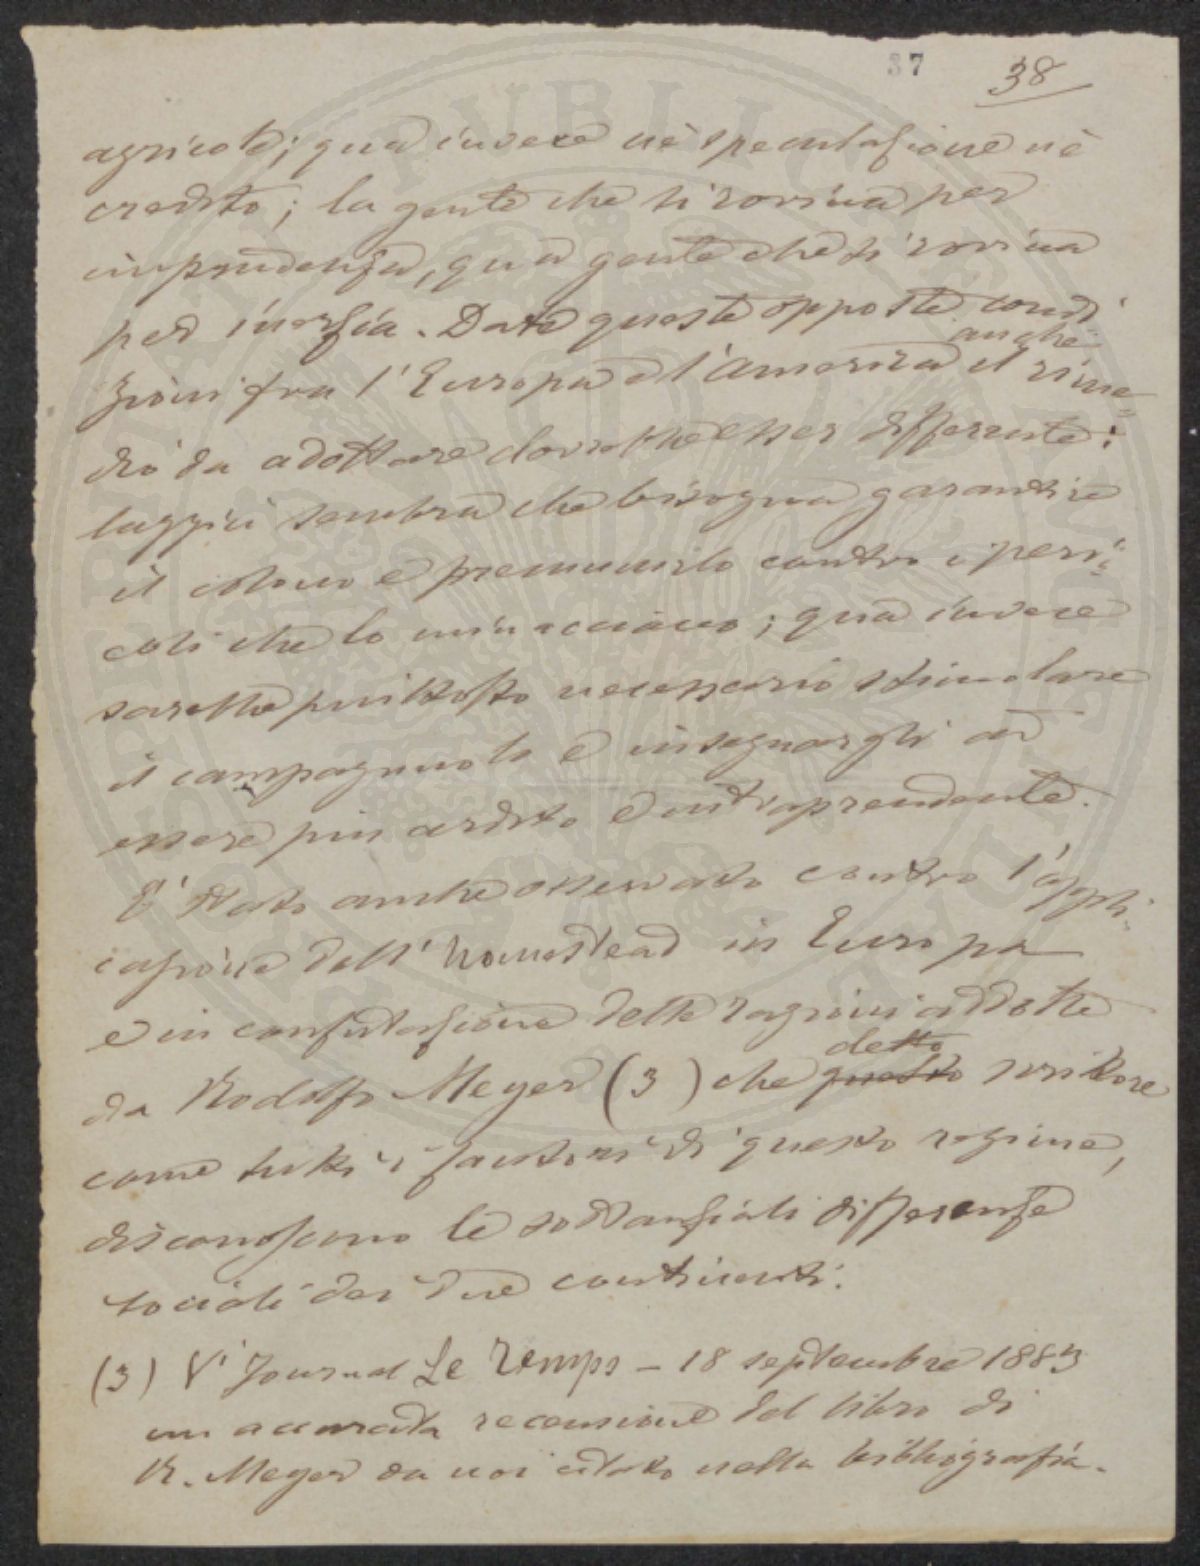 37 38
agricole; qua invece nè speculazione nè
credito; la gente che si rovina per
imprudenza, qua gente che si rovina
per inerzia. Date queste opposte condi
anche
zioni fra l'Europa e l'America il rime=
dio da adottare dovrebbe esser differente:
laggiù sembra che bisogna garantire
il colono e premunirlo contro i peri=
coli che lo minacciano; qua invece
sarebbe piuttosto necessario stimolare
il campagnuolo e insegnargli ad
essere più ardito e intraprendente.
E' stato anche osservato contro l'appli=
cazione dell'homestead in Europa
e in confutazione delle ragioni addotte
detto
da Rodolfo Meyer (3) che questo scrittore
come tutti i fautori di questo regime,
disconoscono le sostanziali differenze
sociali dei due continenti.
(3) V' Journal Le Temps - 18 septembre 1883
un accurata recensione del libro di
R. Meyer da noi citato nella bibliografia.